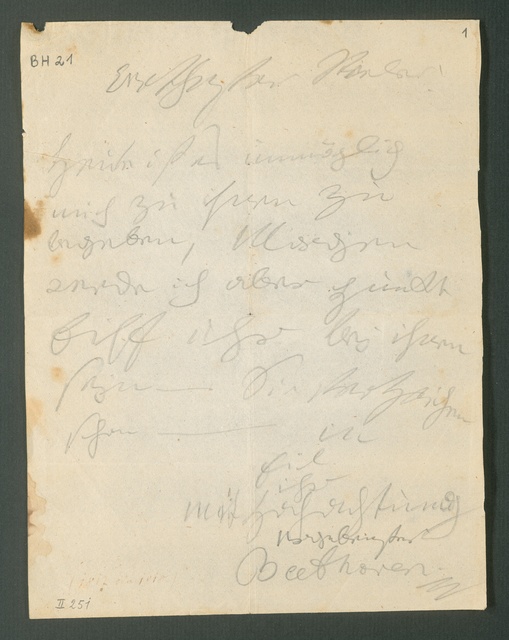 1
BH 21
Verehrtester Stieler!
heute ist es unmöglich
mich zu ihnen zu
begeben, Morgen
werde ich aber Punkt
Eilf uhr bei ihnen
seyn — Sie verzeihen
schon —
in
Eil
ihr
mit Hochachtung
Beethoven
II 251